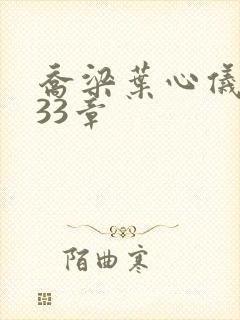 乔梁葉心儀
33章
陌曲寒